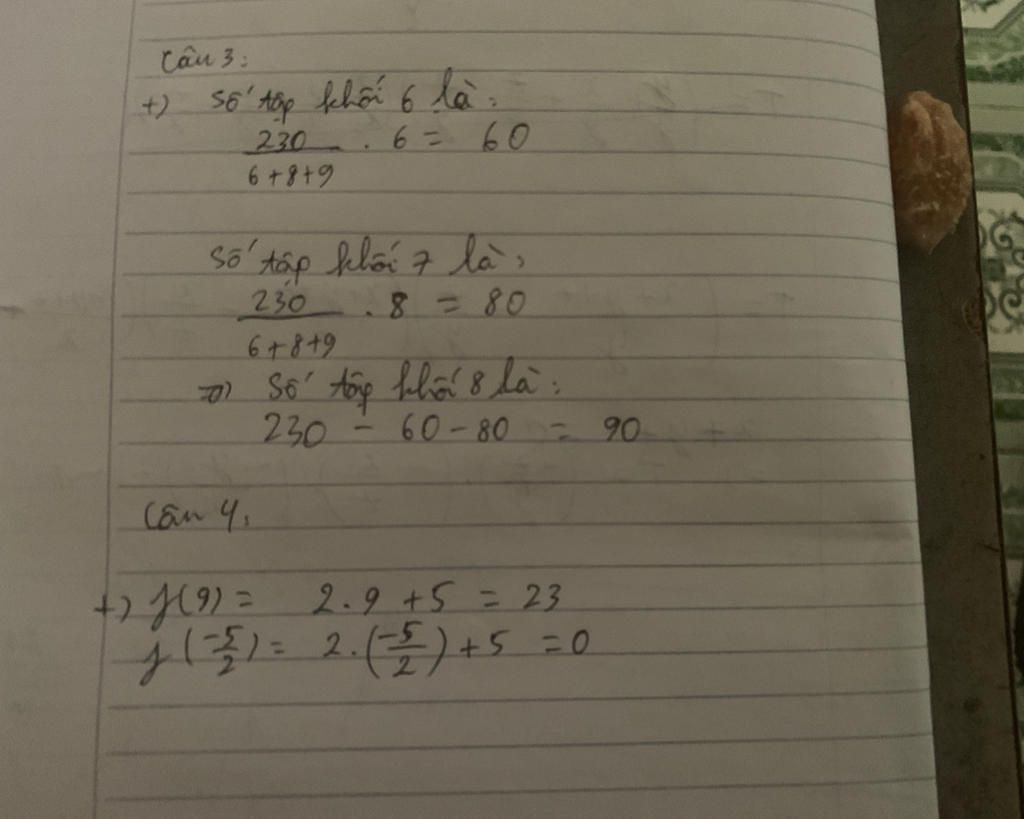 Câu 3:
+) Số tập khối 6 là:
230/6+8+9 . 6 = 60
Số tập khối 7 là:
230/6+8+9 . 8 = 80
=> Số tập khối 8 là:
230 - 60 - 80 = 90
Câu 4:
+) f(9) = 2.9 + 5 = 23
f(-5/2) = 2.(-5/2) + 5 = 0